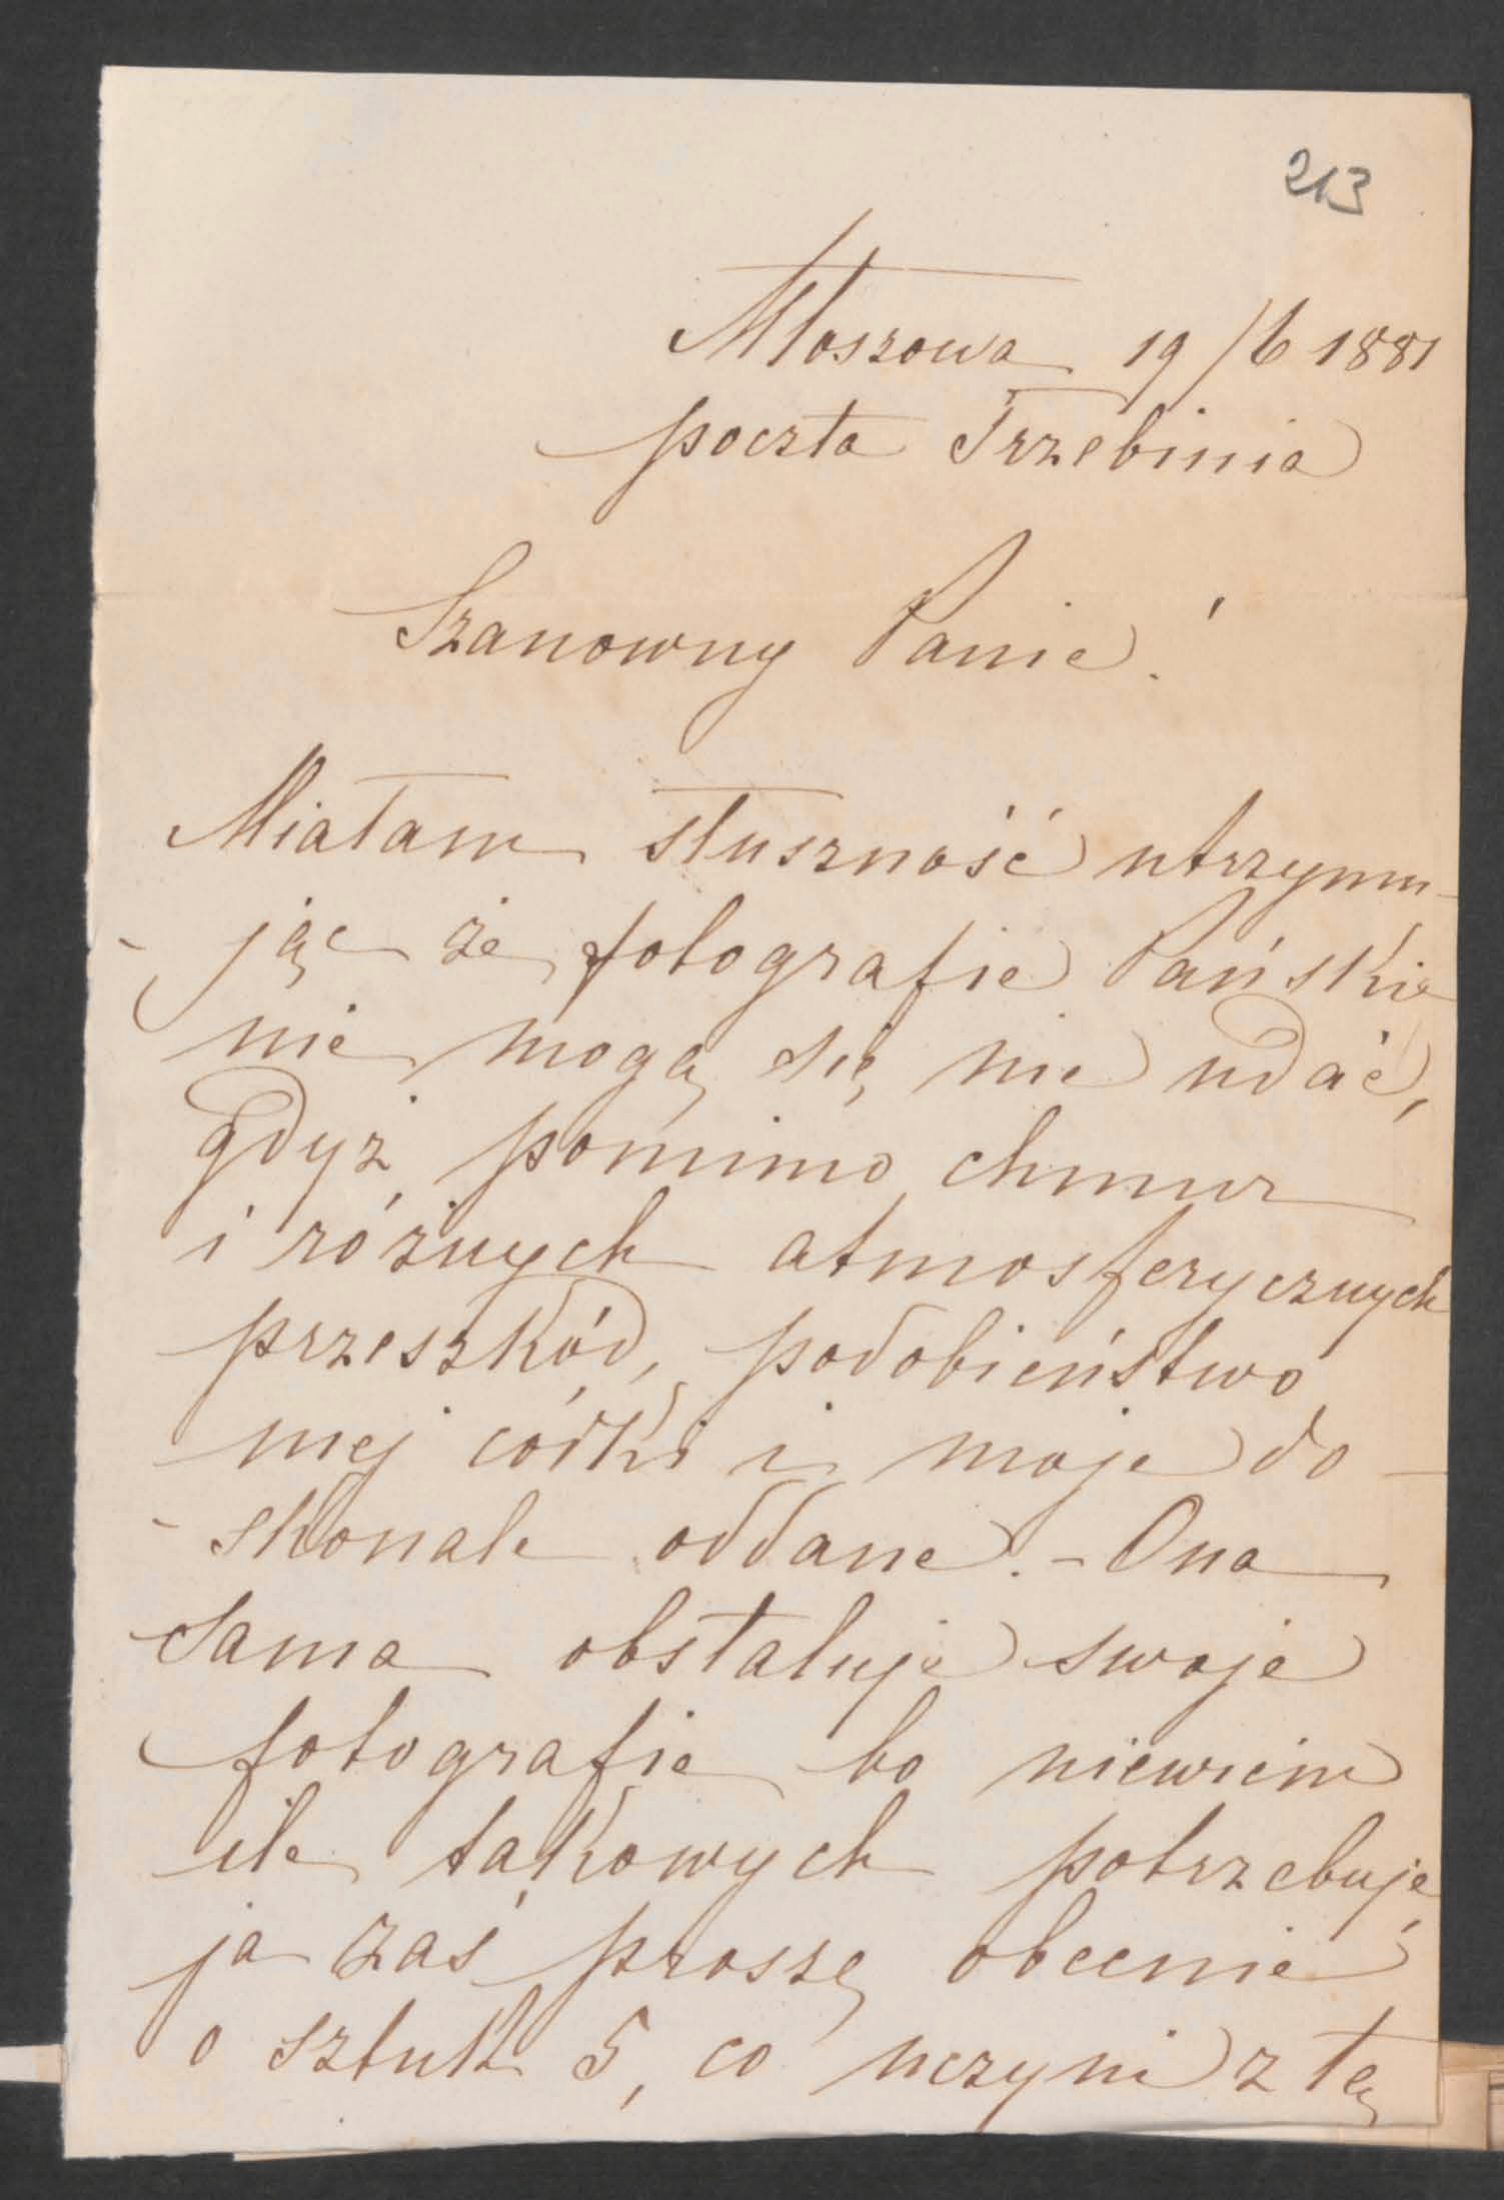 213
Młoszowa 19/6 1881
poczta Trzebinia
Szanowny Panie!
Miałam słuszność utrzymu-
-jąc że fotografie Pańskie
nie mogą się nie udać,
gdyż pomimo chmur
i różnych atmosferycznych
przeszkód, podobieństwo
mej córki i moje do-
-skonale oddane. - Ona
sama obstaluje swoje
fotografie bo niewiem
ile takowych potrzebuje,
ja zaś proszę obecnie
o sztuk 5, co uczyni z tą